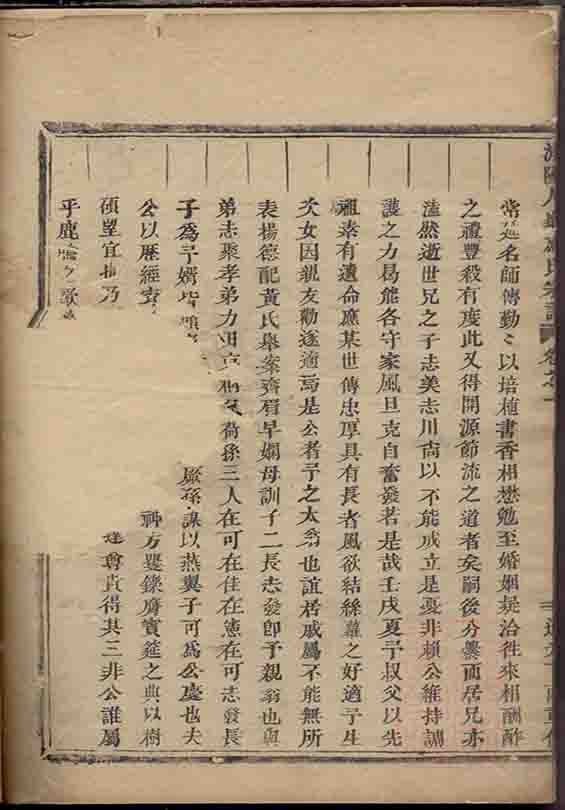 常延名師傅勤〻以培植書香相懋勉至婚姻疑洽徃來相酬酢
之禮豐殺有度此又得開源節流之道者矣嗣後分爨而居兄亦
溘然逝世兄之子志美志川尙以不能成立是憂非賴公維持調
護之力曷能各守家風且克自奮發若是哉壬戌夏予叔父以先
祖素有遺命應某世傳忠厚具有長者風欲結絲蘿之好適予生
次女因親友勸遂適焉是公者予之太翁也誼居戚屬不能無所
表揚德配黃氏舉案齊眉早嫻母訓子二長志發卽予親翁也與
弟志聚孝弟力田 荷孫三人在可在佳在憲在可志發長
子為予婿 厥孫謀以燕翼子可為公慶也夫
公以歷經 神方矍鑠膺賓筵之典以樹
碩望宜 乃 達尊貴得其三非公誰屬
乎鹿
氏宗譜 卷之一